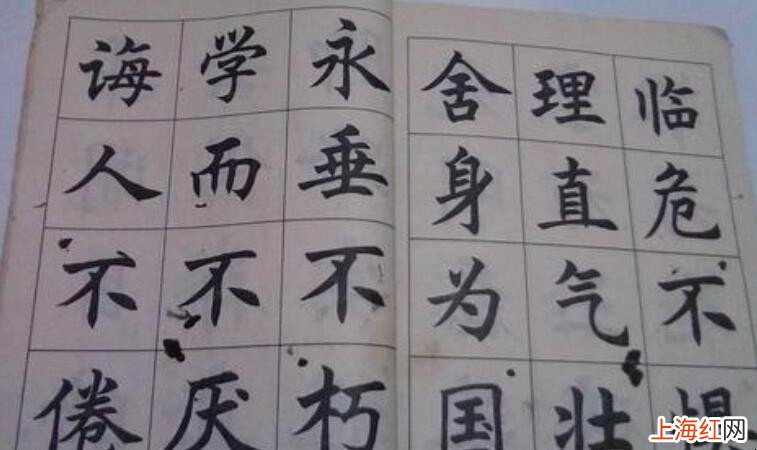 临危不惧
理直气壮
舍身为国
永垂不朽
学而不厌
诲人不倦
上海红网